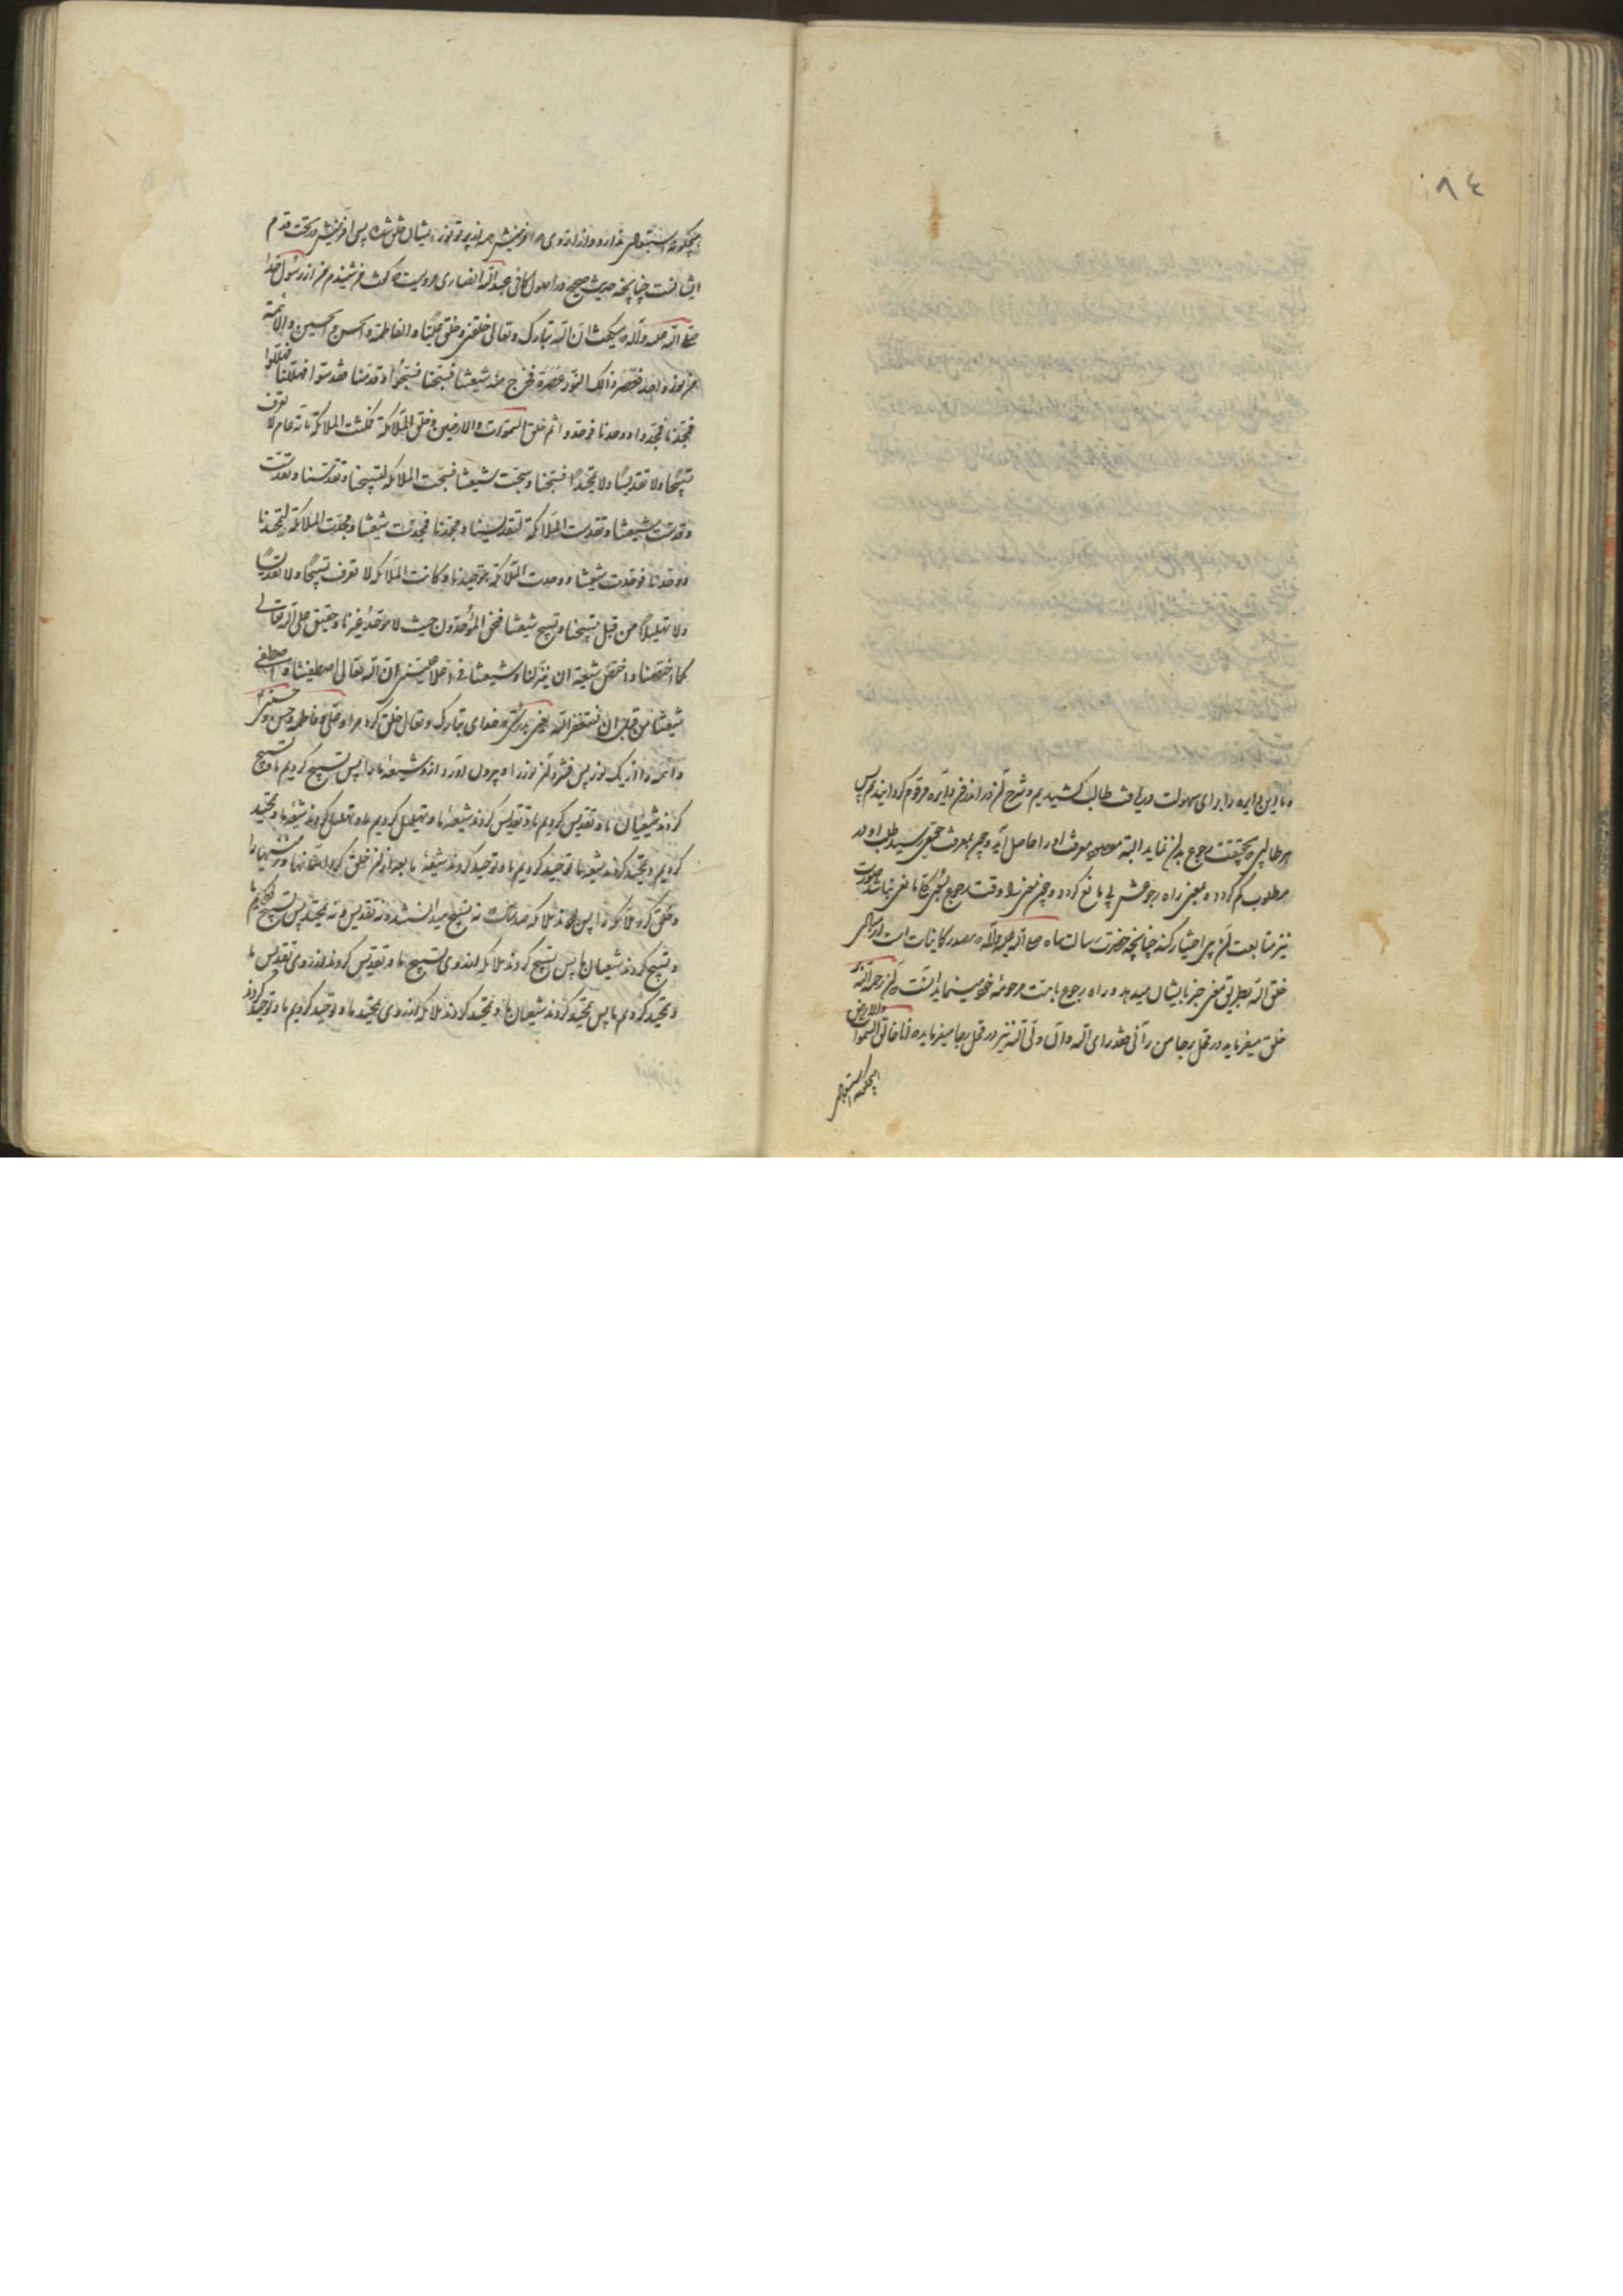 ٨٤
و ما این دایره را برای سهولت دریافت طالب کشیدیم و شرح آن در اندرون دایره مرقوم گردانیدیم پس
هر طالبی بحقیقت رجوع بدان نماید البته معرفت او را حاصل آید و چون بمعرفت حقیقی رسید طلب او در
مطلوب گم گردد و معنی راه رجوعش پی مانع گردد و چون معنی را وقت رجوع مانعی نباشد صورت
نیز متابعت آن اختیار کند چنانچه حضرت رسالت پناه صلی الله علیه وآله مصدر کاینات است
خلق الله بطریق معنی جز بایشان میدهد و راه رجوع بامت مرحومه خود مینماید رحمة الله
خلق میفرماید در محل رجا من رآنی فقد رای الله و آن ولی الله نیز در محل رجا میفرماید انا خالق السموات والارض
هیچگونه استبعادی
هیچگونه استبعادی ندارد و از ایشان خلق شده پس آفرینش در تحت قدم
ایشانست چنانچه حدیث صحیح در اصول کافی عبدالله انصاری مرویست که گفت من شنیدم من از رسول خدا
صلی الله علیه وآله که میگفت ان الله تبارک وتعالی خلقنی وخلق علیا والفاطمة والحسن والحسین والائمة
من نور واحد فعصر ذالک النور عصرة فخرج منه شیعتنا فسبحنا فسبحوا وقدسنا فقدسوا فهللنا فهللوا
فمجدنا فمجدوا ووحدنا فوحدوا ثم خلق السموات والارضین وخلق الملائکة فمکثت الملائکة مائة عام لا تعرف
تسبیحا ولا تقدیسا ولا تمجیدا فسبحنا وسبحت شیعتنا فسبحت الملائکه لتسبیحنا وتقدسنا وتقدست
وقدست شیعتنا وتقدست الملائکة لتقدیسنا ومجدنا فمجدت شیعتنا ومجدت الملائکة لتمجیدنا
ووحدنا فوحدت شیعتنا ووحدت الملائکة بتوحیدنا وکانت الملائکه لا تعرف تسبیحا ولا تقدیسا
ولا تهلیلا من قبل تسبیحنا وتسبیح شیعتنا فنحن الموحدون حیث لا موحد غیرنا وحقیق علی الله تعالی
کما اختصنا واختص شیعتنا ان ینزلنا وشیعتنا فی اعلا علیین ان الله تعالی اصطفینا واصطفی
شیعتنا من قبل ان نستغفر الله یعنی بدرستی که خدای تبارک وتعالی خلق کرد مرا و علی و فاطمه و حسن و حسین
و ائمه را از یک نور پس فشرد آن نور را و بیرون آورد از و شیعه ما را پس تسبیح کردیم ما و تسبیح
کردند شیعیان ما و تقدیس کردیم ما و تقدیس کردند شیعه ما و تهلیل کردیم ما و تهلیل کردند شیعه ما و تمجید
کردیم و تمجید کردند شیعه ما و توحید کردیم ما و توحید کردند شیعه ما بعد از آن خلق کرد آسمانها و زمینها را
و خلق کرد ملائکه را پس ماندند ملائکه صد سال که نه تسبیح میدانستند و نه تقدیس و نه تمجید پس تسبیح کردیم ما
و تسبیح کردند شیعیان ما پس تسبیح کردند ملائکه از روی تسبیح ما و تقدیس کردند از روی تقدیس ما
و تمجید کردیم ما پس تمجید کردند شیعیان ما و تمجید کردند ملائکه از روی تمجید ما و توحید کردیم ما و توحید کردند